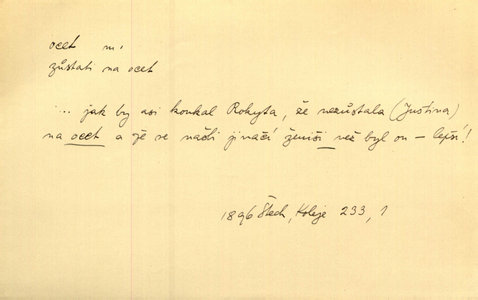 ocet m.
zůstati na ocet
... jak by asi koukal Rokyta, že nezůstala (Justina)
na ocet a že se našli jinačí ženiši než byl on – lepší!
1896 Štech, Kolije 233, 1